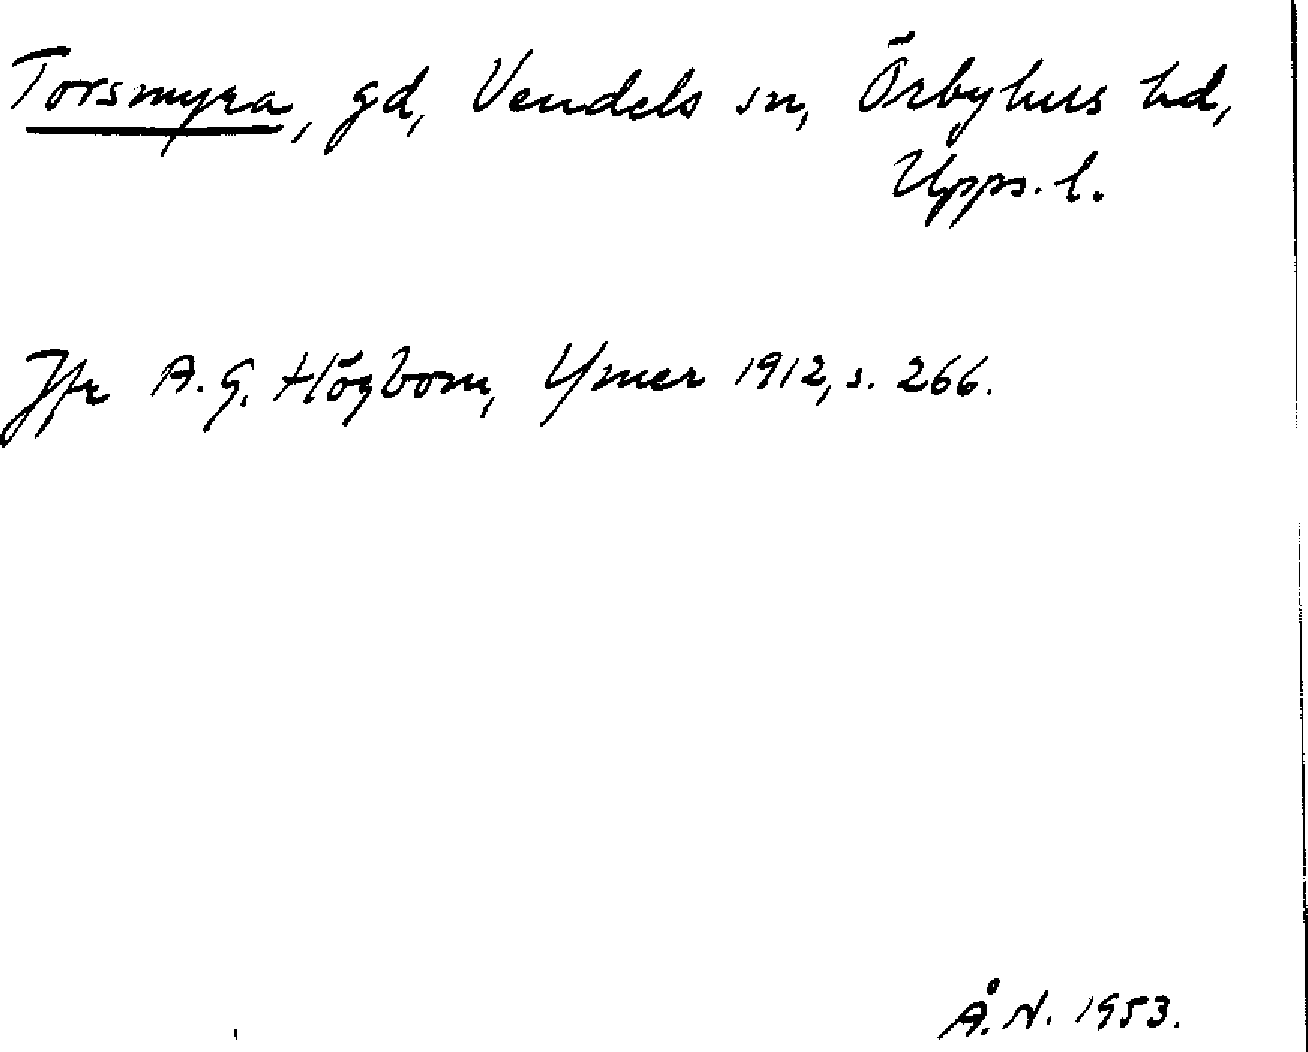 Torsmyra, gd, Vendels sn, Örbyhus hd,
Upps. l.
Jfr A. G. Högbom, Ymer 1912, s. 266.
Å. N. 1953.